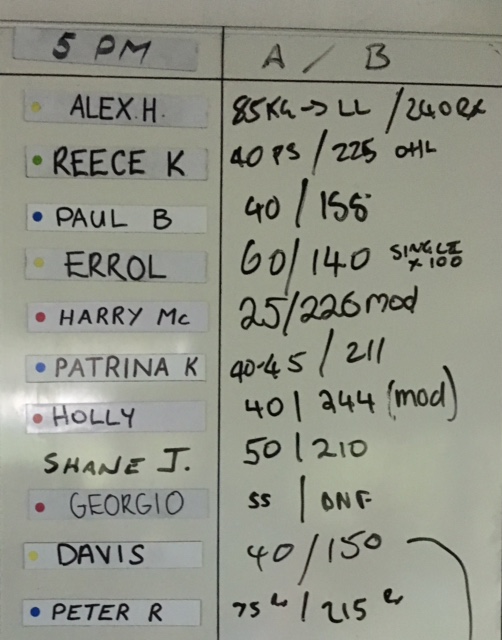 5 PM A / B
ALEX.H. 85KG → LL / 240 RX
REECE K 40 PS / 225 OHL
PAUL B 40 / 155
ERROL 60 / 140 SINGLE x 100
HARRY Mc 25 / 226 mod
PATRINA K 40-45 / 211
HOLLY 40 | 244 (mod)
SHANE J. 50 | 210
GEORGIO SS | DNF
DAVIS 40 / 150
PETER R 75 / 215